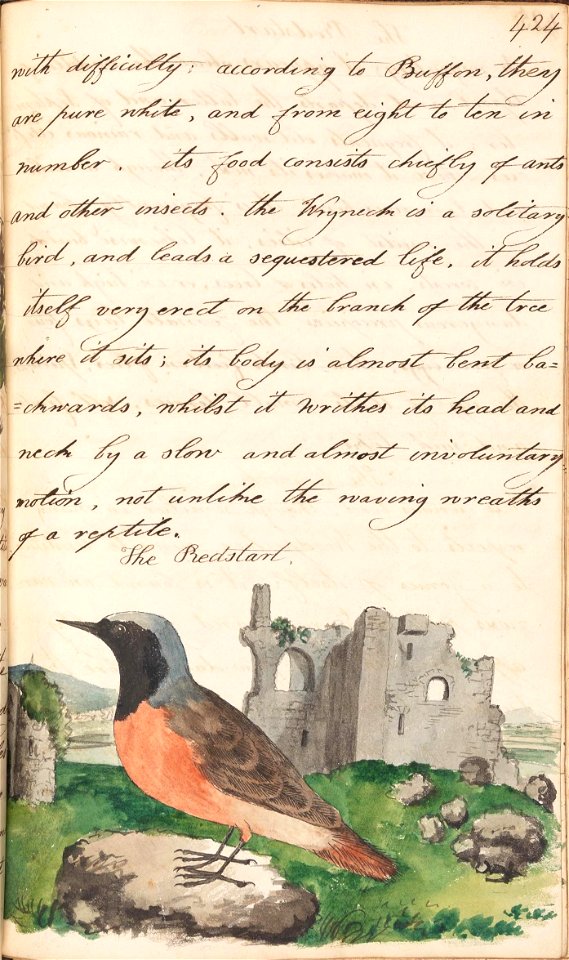 424
with difficulty; according to Buffon, they
are pure white, and from eight to ten in
number. its food consists chiefly of ants
and other insects. the Wryneck is a solitary
bird, and leads a sequestered life, it holds
itself very erect on the branch of the tree
where it sits; its body is almost bent ba=
=ckwards, whilst it writhes its head and
neck by a slow and almost involuntary
motion, not unlike the waving wreaths
of a reptile.
The Redstart.